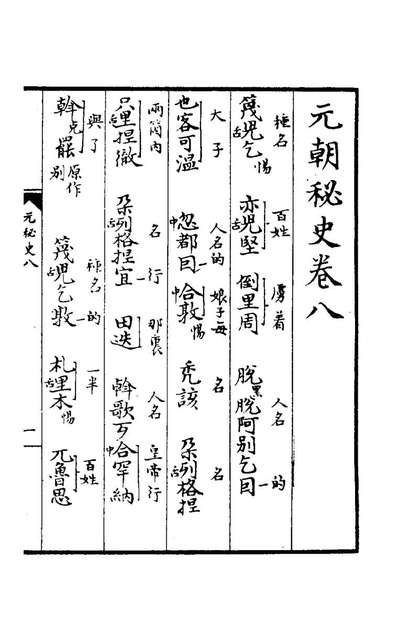 元朝秘史卷八
種名 百姓 虜着 人名 的
篾舌兒乞惕 亦舌兒堅 倒里周 脫黑脫阿別乞囙
大子 人名的 娘子每 名 名
也客可溫 中忽都囙 中合敦惕 禿該 朶舌列格捏
兩箇內 名行 那裏 人名 皇帝行
只舌里捏徹 朶舌列格捏宜 田迭 斡歌歹 中合罕納
與了 種名的 一半 百姓
斡克罷 原作別 篾舌兒乞敦 札舌里木惕 兀魯思
元秘史八 一